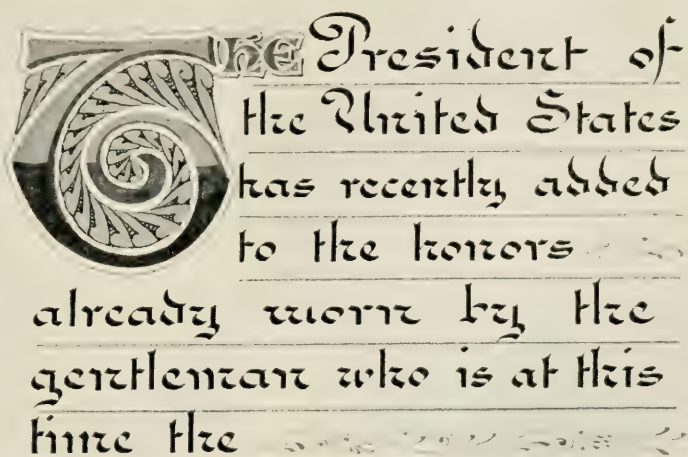 The President of
the United States
has recently added
to the honors
already worn by the
gentleman who is at this
time the